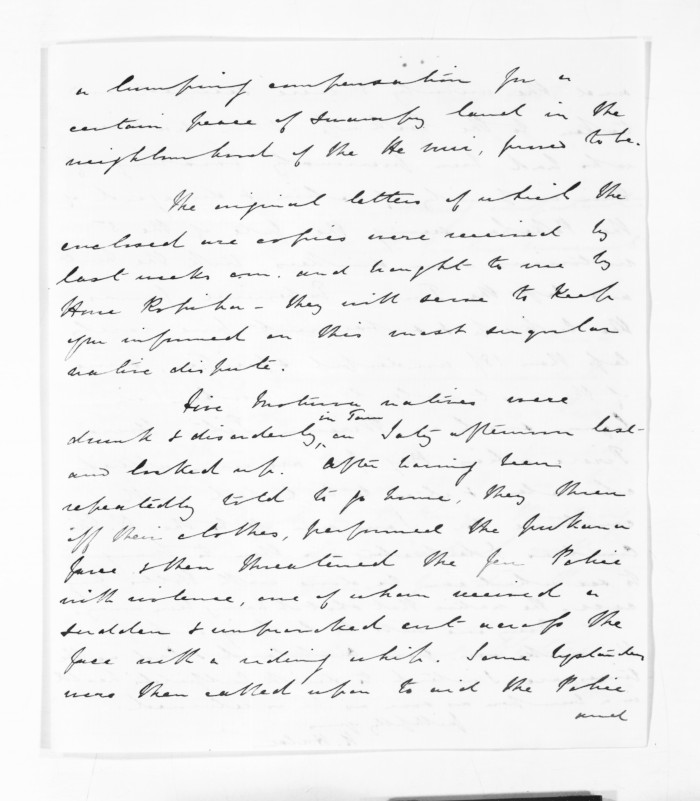 a lumping compensation for a
certain peace of swampy land in the
neighbourhood of the
The original letters of which the
enclosed are copies were received by
last weeks and brought to me by
Hone Ropiha - they will serve to keep
you informed on this most singular
native dispute.
Five natives were
drunk & disorderly, in Town on Saty afternoon last
and locked up. After having been
repeatedly told to go home, they threw
off their clothes, performed the pukana
face & then threatened the few Police
with violence, one of whom received a
sudden & unprovoked cut across the
face with a riding whip. Some bystanders
were then called upon to aid the Police
and